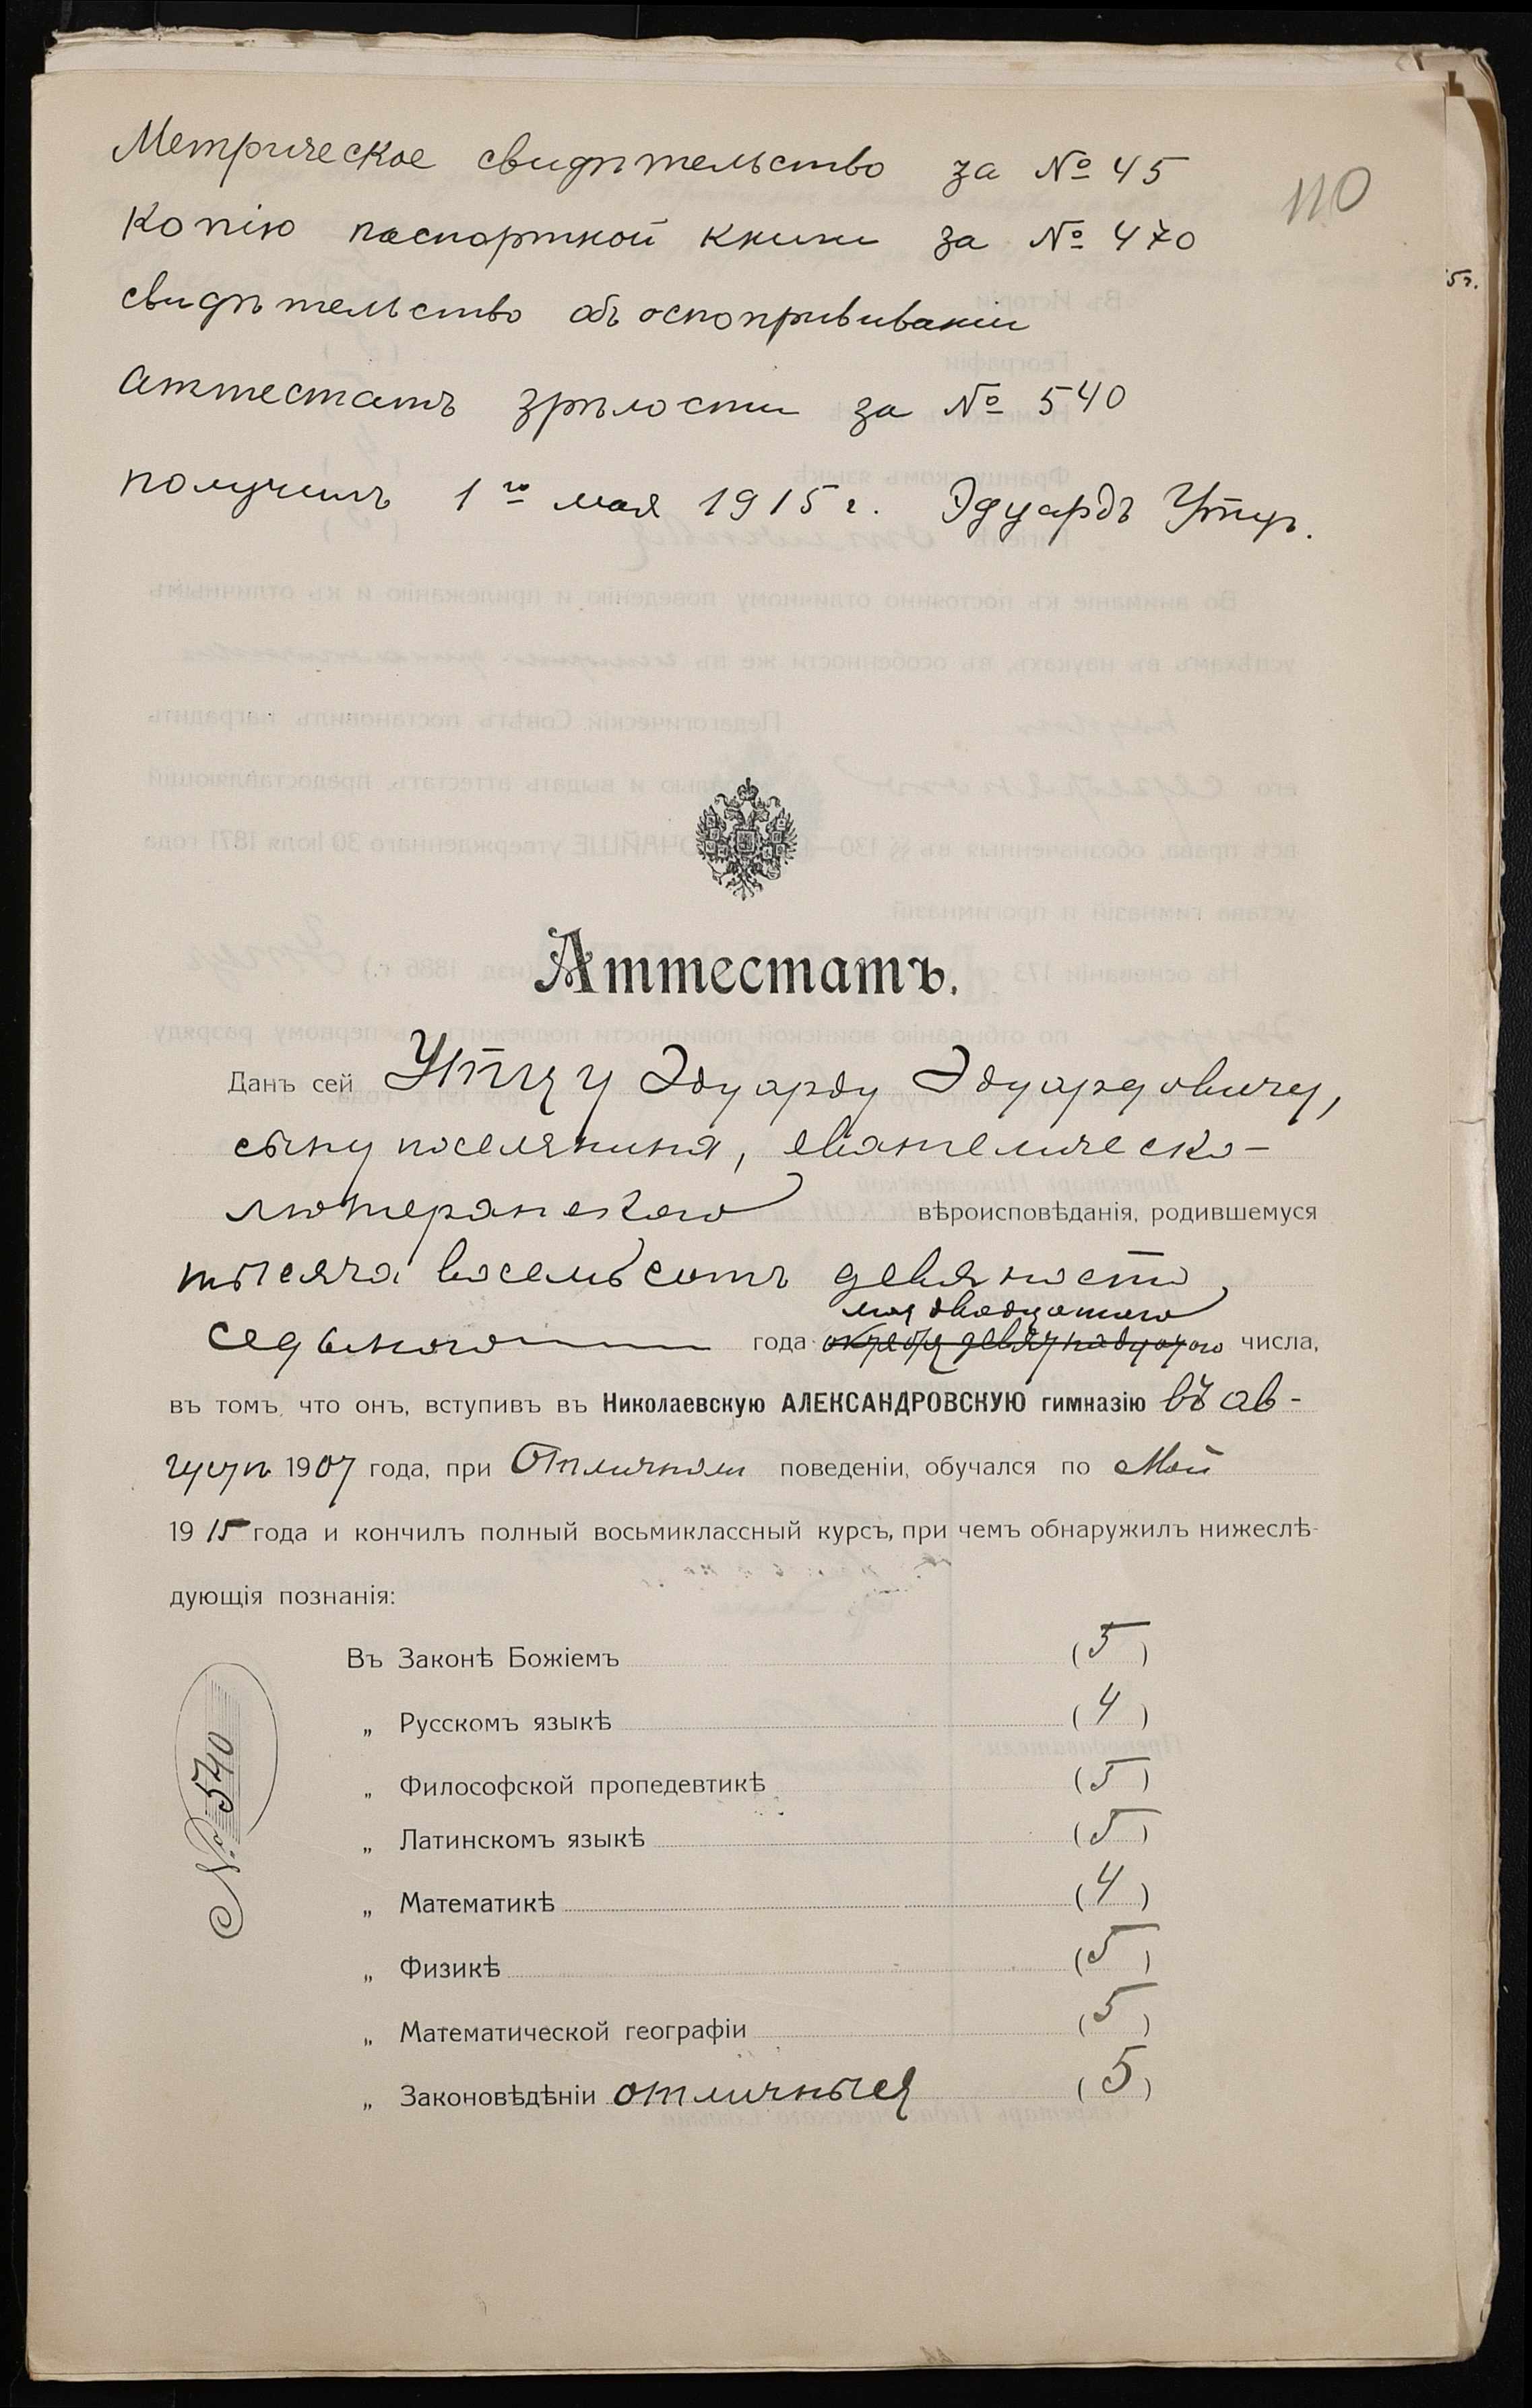 Метрическое свидѣтельство за № 45
110
Копію паспортной книги за № 470
свидѣтельство объ оспопрививаніи
Аттестатъ зрѣлости за № 540
получилъ 1го мая 1915 г. Эдуардъ Утцъ.
Аттестатъ.
Данъ сей Утцу Эдуарду Эдуардовичу,
сыну поселянина, евангелическо-
лютеранскаго вѣроисповѣданія, родившемуся
тысяча восемьсотъ девяносто
мая двадцатаго
седьмого года октября девятнадцатого числа,
въ томъ, что онъ, вступивъ въ Николаевскую АЛЕКСАНДРОВСКУЮ гимназію въ ав-
густѣ 1907 года, при отличномъ поведеніи, обучался по Май
1915 года и кончилъ полный восьмиклассный курсъ, при чемъ обнаружилъ нижеслѣ-
дующія познанія:
Въ Законѣ Божіемъ (5)
„ Русскомъ языкѣ (4)
„ Философской пропедевтикѣ (5)
„ Латинскомъ языкѣ (5)
„ Математикѣ (4)
„ Физикѣ (5)
„ Математической географіи (5)
„ Законовѣдѣніи отличныя (5)
№ 540